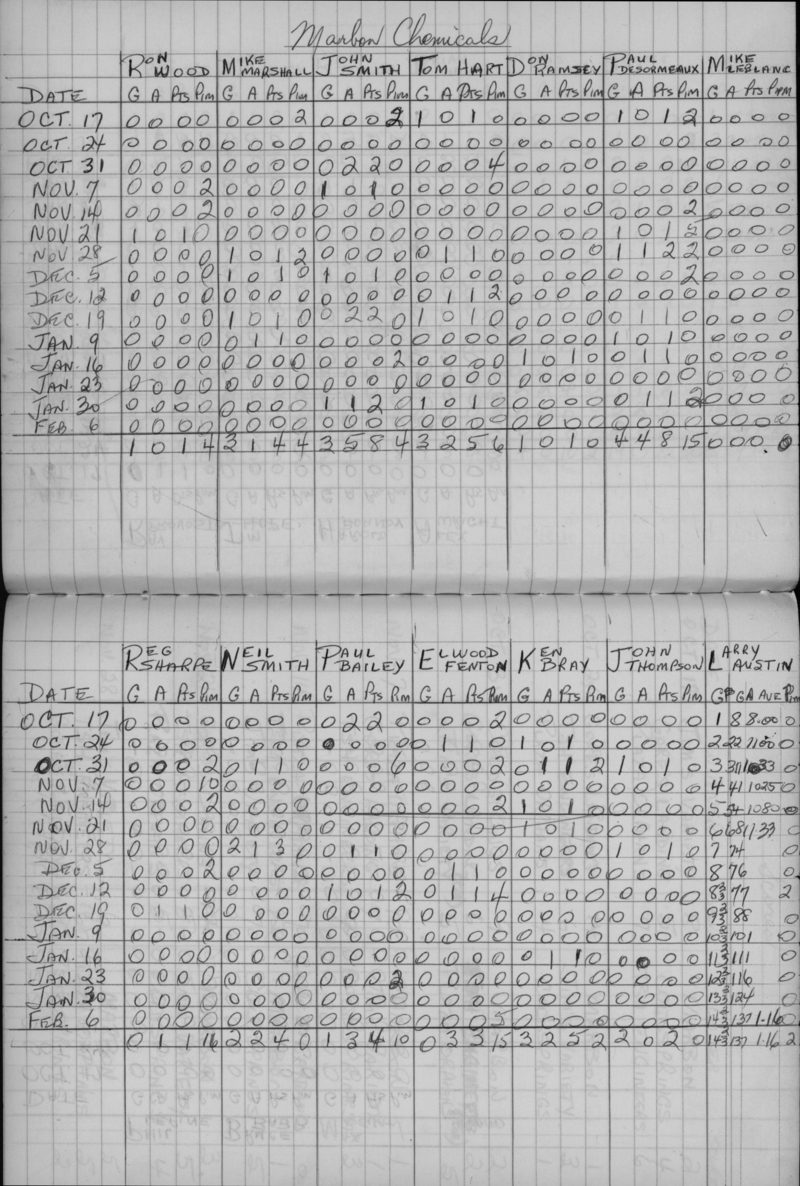 Marbon Chemicals
RON WOOD MIKE MARSHALL JOHN SMITH TOM HART DON RAMSEY PAUL DESORMEAUX MIKE LEBLANC
DATE G A Pts Pim G A Pts Pim G A Pts Pim G A Pts Pim G A Pts Pim G A Pts Pim G A Pts Pim
OCT. 17 0 0 0 0 0 0 0 2 0 0 0 2 1 0 1 0 0 0 0 0 1 0 1 2 0 0 0 0
OCT. 24 0 0 0 0 0 0 0 0 0 0 0 0 0 0 0 0 0 0 0 0 0 0 0 0 0 0 0 0
OCT. 31 0 0 0 0 0 0 0 0 0 2 2 0 0 0 0 4 0 0 0 0 0 0 0 0 0 0 0 0
NOV. 7 0 0 0 2 0 0 0 0 1 0 1 0 0 0 0 0 0 0 0 0 0 0 0 0 0 0 0 0
NOV. 14 0 0 0 2 0 0 0 0 0 0 0 0 0 0 0 0 0 0 0 0 0 0 0 2 0 0 0 0
NOV. 21 1 0 1 0 0 0 0 0 0 0 0 0 0 0 0 0 0 0 0 0 1 0 1 2 0 0 0 0
NOV. 28 0 0 0 0 1 0 1 2 0 0 0 0 0 1 1 0 0 0 0 0 1 1 2 2 0 0 0 0
DEC. 5 0 0 0 0 1 0 1 0 1 0 1 0 0 0 0 0 0 0 0 0 0 0 0 2 0 0 0 0
DEC. 12 0 0 0 0 0 0 0 0 0 0 0 0 0 1 1 2 0 0 0 0 0 0 0 0 0 0 0 0
DEC. 19 0 0 0 0 1 0 1 0 0 2 2 0 1 0 1 0 0 0 0 0 0 1 1 0 0 0 0 0
JAN. 9 0 0 0 0 0 1 1 0 0 0 0 0 0 0 0 0 0 0 0 0 1 0 1 0 0 0 0 0
JAN. 16 0 0 0 0 0 0 0 0 0 0 0 2 0 0 0 0 1 0 1 0 0 1 1 0 0 0 0 0
JAN. 23 0 0 0 0 0 0 0 0 0 0 0 0 0 0 0 0 0 0 0 0 0 0 0 0 0 0 0 0
JAN. 30 0 0 0 0 0 0 0 0 1 1 2 0 1 0 1 0 0 0 0 0 0 1 1 2 0 0 0 0
FEB. 6 0 0 0 0 0 0 0 0 0 0 0 0 0 0 0 0 0 0 0 0 0 0 0 0 0 0 0 0
1 0 1 4 3 1 4 4 3 5 8 4 3 2 5 6 1 0 1 0 4 4 8 15 0 0 0 0
REG SHARPE NEIL SMITH PAUL BAILEY ELWOOD FENTON KEN BRAY JOHN THOMPSON LARRY AUSTIN
DATE G A Pts Pim G A Pts Pim G A Pts Pim G A Pts Pim G A Pts Pim G A Pts Pim GP GA AVE Pim
OCT. 17 0 0 0 0 0 0 0 0 0 2 2 0 0 0 0 2 0 0 0 0 0 0 0 0 1 8 8.00 0
OCT. 24 0 0 0 0 0 0 0 0 0 0 0 0 0 1 1 0 1 0 1 0 0 0 0 0 2 22 11.00 0
OCT. 31 0 0 0 2 0 1 1 0 0 0 0 6 0 0 0 2 0 1 1 2 1 0 1 0 3 31 0
NOV. 7 0 0 0 10 0 0 0 0 0 0 0 0 0 0 0 0 0 0 0 0 0 0 0 0 4 41 1025 0
NOV. 14 0 0 0 2 0 0 0 0 0 0 0 0 0 0 0 2 1 0 1 0 0 0 0 0 5 54 1080 0
NOV. 21 0 0 0 0 0 0 0 0 0 0 0 0 0 0 0 0 1 0 1 0 0 0 0 0 6 68 1133 0
NOV. 28 0 0 0 0 2 1 3 0 0 1 1 0 0 0 0 0 0 0 0 0 1 0 1 0 7 74 0
DEC. 5 0 0 0 2 0 0 0 0 0 0 0 0 0 1 1 0 0 0 0 0 0 0 0 0 8 76 0
DEC. 12 0 0 0 0 0 0 0 0 1 0 1 2 0 1 1 4 0 0 0 0 0 0 0 0 8 2/3 77 2
DEC. 19 0 1 1 0 0 0 0 0 0 0 0 0 0 0 0 0 0 0 0 0 0 0 0 0 9 2/3 88 0
JAN. 9 0 0 0 0 0 0 0 0 0 0 0 0 0 0 0 0 0 0 0 0 0 0 0 0 10 2/3 101 0
JAN. 16 0 0 0 0 0 0 0 0 0 0 0 0 0 0 0 0 0 1 1 0 0 0 0 0 11 2/3 111 0
JAN. 23 0 0 0 0 0 0 0 0 0 0 0 2 0 0 0 0 0 0 0 0 0 0 0 0 12 2/3 116 0
JAN. 30 0 0 0 0 0 0 0 0 0 0 0 0 0 0 0 0 0 0 0 0 0 0 0 0 13 2/3 124 0
FEB. 6 0 0 0 0 0 0 0 0 0 0 0 0 0 0 0 5 0 0 0 0 0 0 0 0 14 2/3 137 1.16 0
0 1 1 16 2 2 4 0 1 3 4 10 0 3 3 15 3 2 5 2 2 0 2 0 14 2/3 137 1.16 2